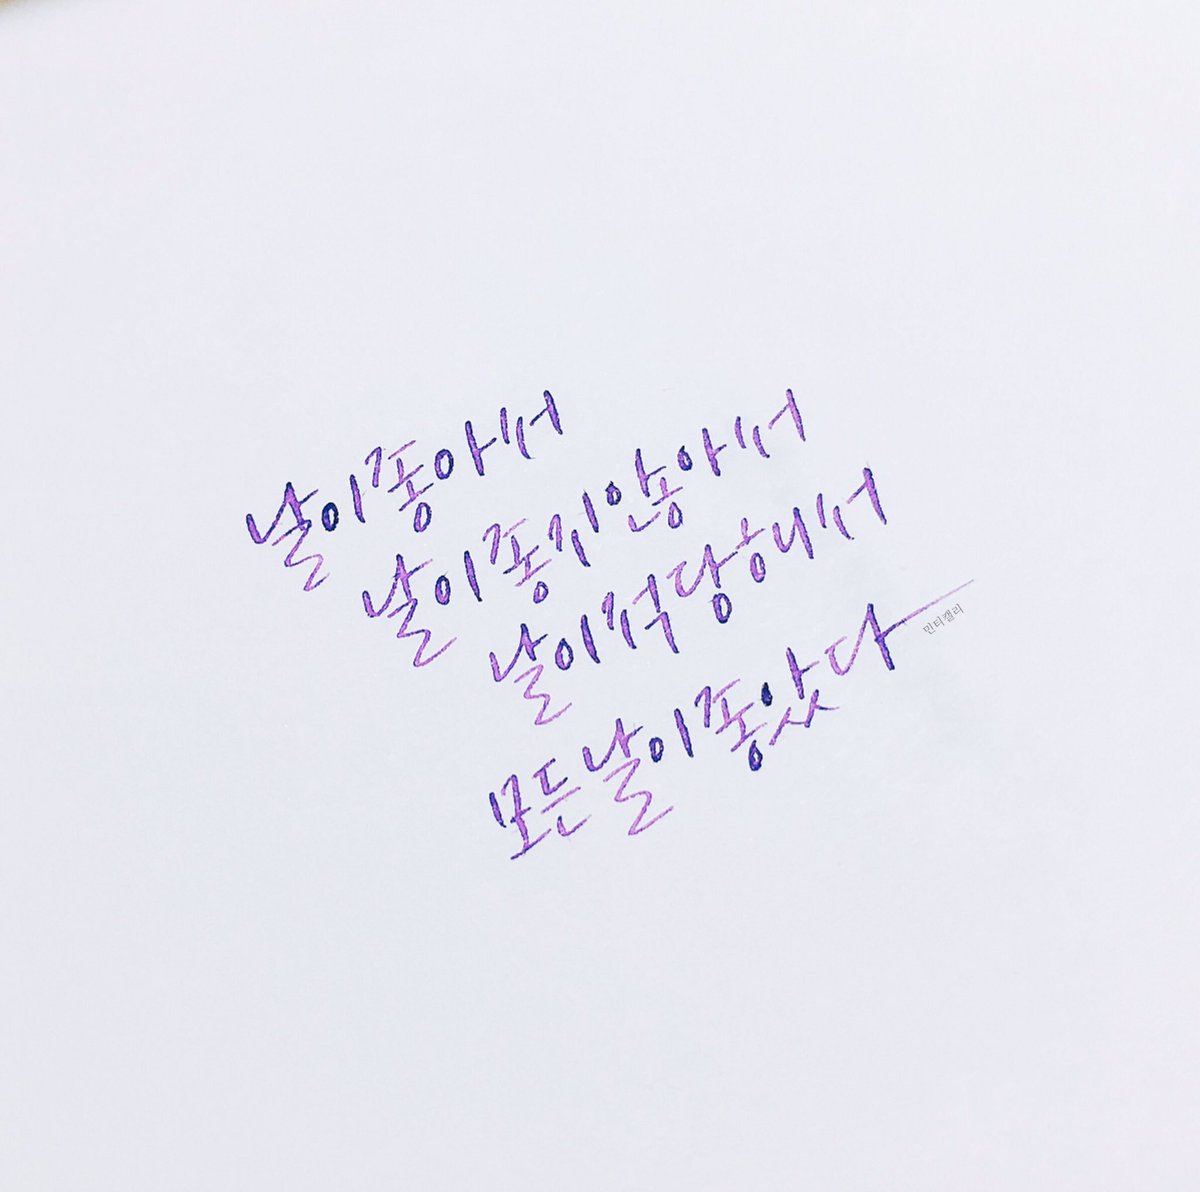 날이좋아서
날이좋지않아서
날이적당해서
모든날이좋았다
민티캘리